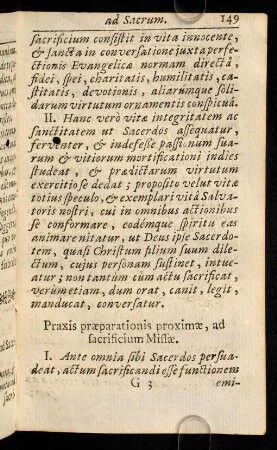 ad Sacrum. 149
sacrificium consistit in vita innocente,
& sancta in conversatione juxta perfe-
ctionis Evangelicæ normam directâ,
fidei, spei, charitatis, humilitatis, ca-
stitatis, devotionis, aliarumque soli-
darum virtutum ornamentis conspicuâ.
II. Hanc verò vitæ integritatem ac
sanctitatem ut Sacerdos assequatur,
ferventer, & indefesse passionum sua-
rum & vitiorum mortificationi indies
studeat, & prædictarum virtutum
exercitio se dedat; proposito velut vitæ
totius speculo, & exemplari vitâ Salva-
toris nostri, cui in omnibus actionibus
se conformare, eodémque spiritu eas
animare nitatur, ut Deus ipse Sacerdo-
tem, quasi Christum filium suum dile-
ctum, cujus personam sustinet, intue-
atur; non tantùm cum actu sacrificat,
verùm etiam, dum orat, canit, legit,
manducat, conversatur.
Praxis præparationis proximæ, ad
sacrificium Missæ.
I. Ante omnia sibi Sacerdos persua-
deat, actum sacrificandi esse functionem
G 3 emi-